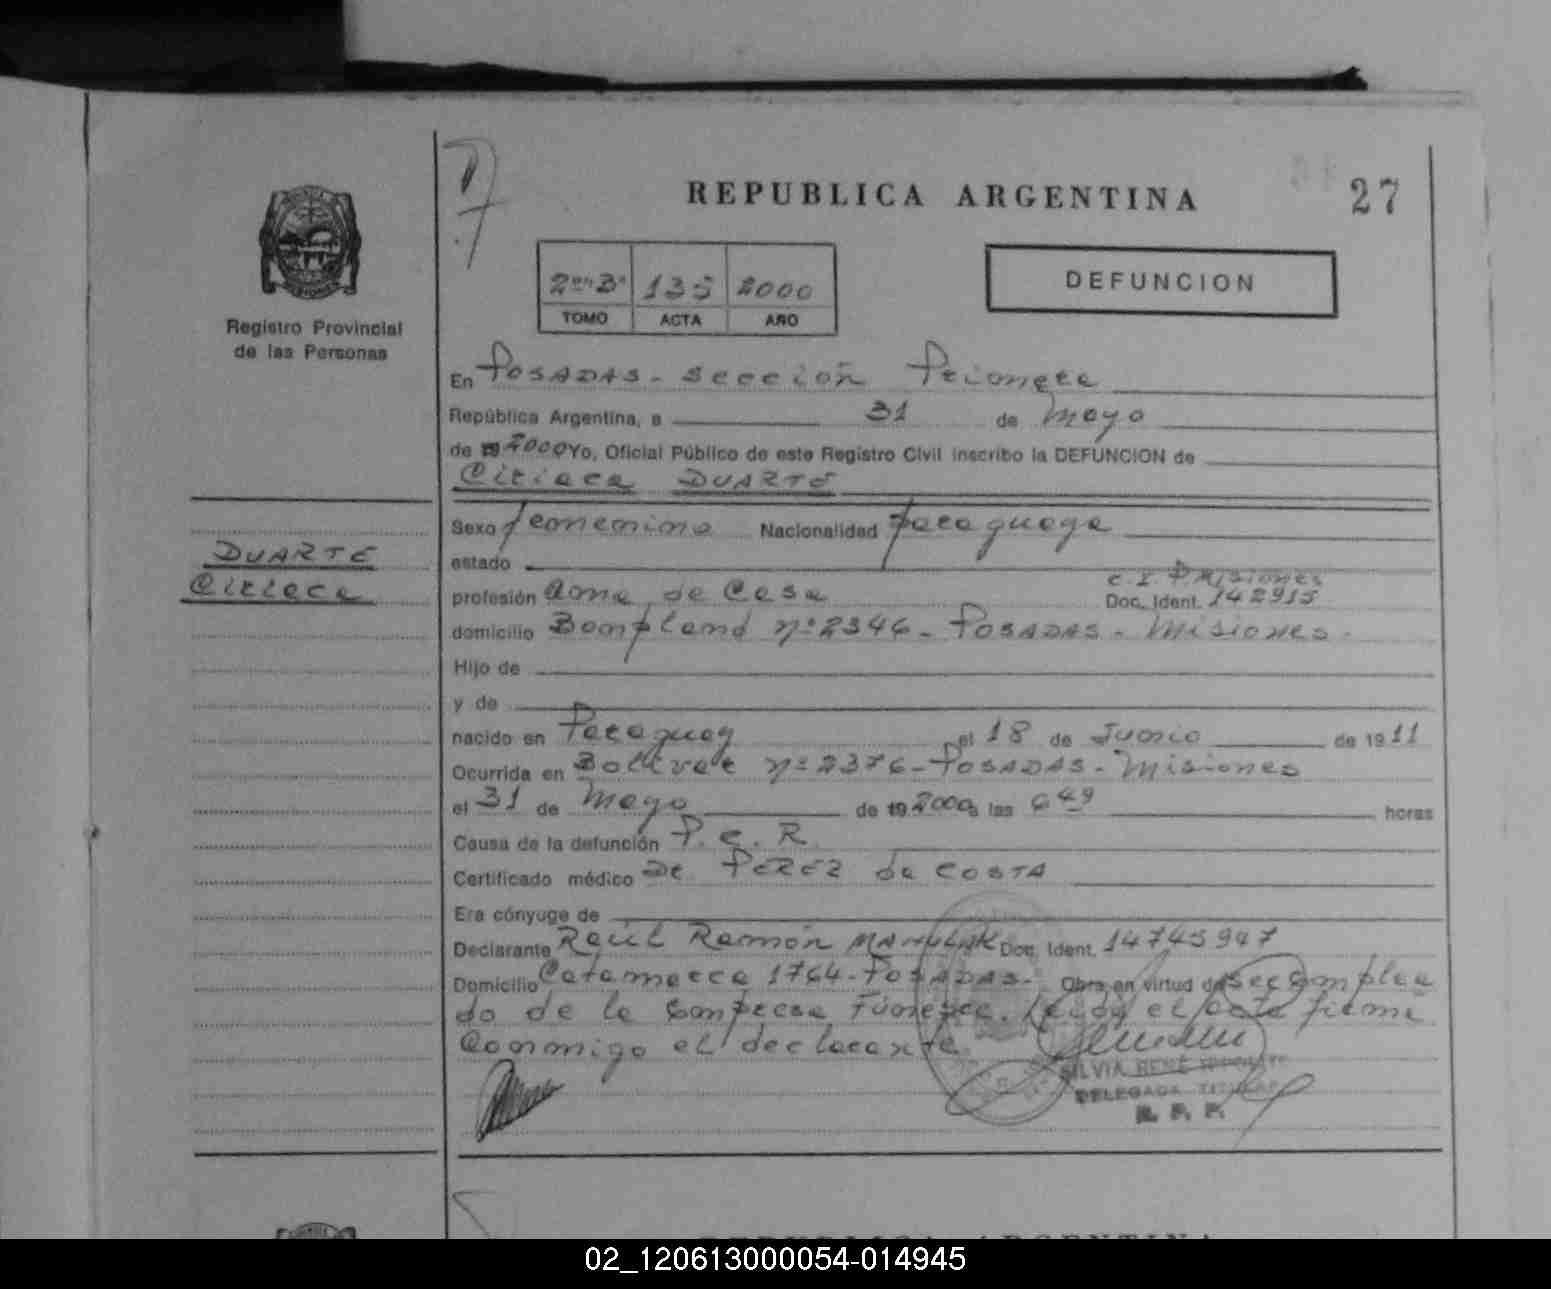 27
REPUBLICA ARGENTINA
DEFUNCION
135 2000
TOMO ACTA AÑO
Registro Provincial
de las Personas
En POSADAS - Sección Primera
República Argentina, a 31 de Mayo
de 19 2000 Yo, Oficial Público de este Registro Civil inscribo la DEFUNCION de
Ciriaca DUARTE
DUARTE
Ciriaca
Sexo femenino Nacionalidad paraguaya
estado
C.I. Misiones
profesión Ama de Casa Doc. Ident. 142915
domicilio Bompland nº 2346 - POSADAS - Misiones.
Hijo de
y de
nacido en Paraguay el 18 de Junio de 1911
Ocurrida en Bolívar nº 2376 - POSADAS - Misiones
el 31 de Mayo de 19 2000 a las 6 49 horas
Causa de la defunción P.C.R.
Certificado médico Dr. PEREZ da COSTA
Era cónyuge de
Declarante Raúl Ramón Doc. Ident. 14745947
Domicilio Catamarca 1764 - POSADAS. Obra en virtud de ser emplea
do de la Empresa Fúnebre. Leída el acta firma
conmigo el declarante.
SILVIA RENÉ
DELEGADA TITULAR
R. P. P.
REPUBLICA ARGENTINA
02_120613000054-014945